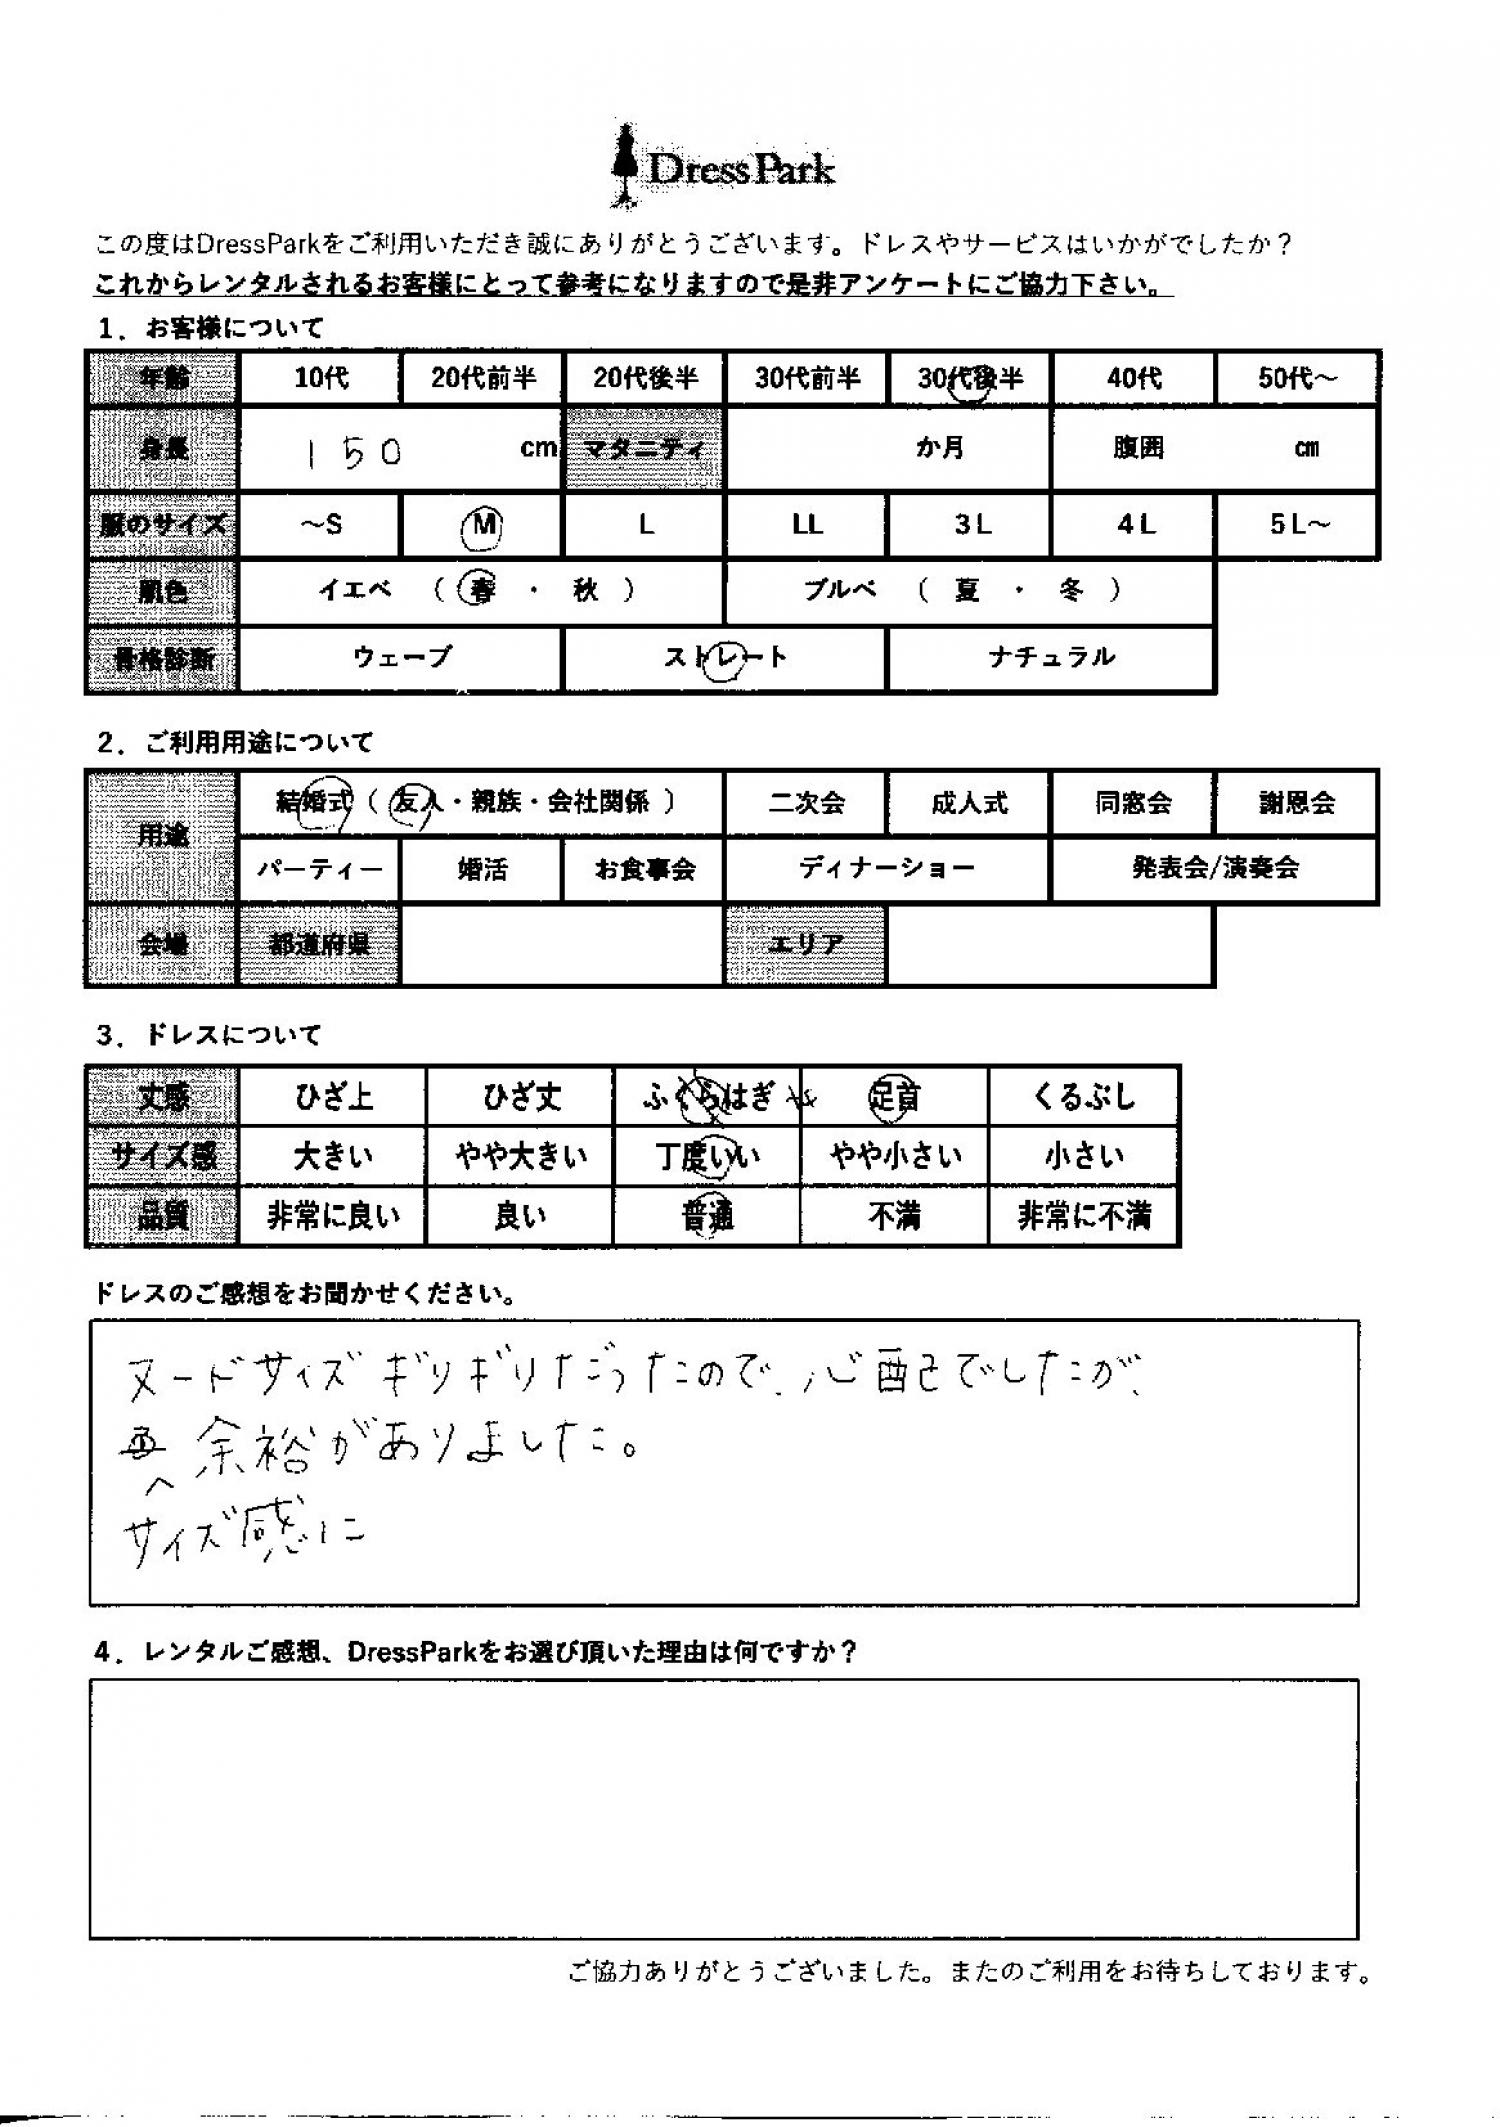 DressPark
この度はDressParkをご利用いただき誠にありがとうございます。ドレスやサービスはいかがでしたか？
これからレンタルされるお客様にとって参考になりますので是非アンケートにご協力下さい。
1．お客様について
年齢 10代 20代前半 20代後半 30代前半 30代後半 40代 50代～
身長 150 cm マタニティ か月 腹囲 ㎝
服のサイズ ～S M L LL 3L 4L 5L～
肌色 イエベ （ 春 ・ 秋 ） ブルベ （ 夏 ・ 冬 ）
骨格診断 ウェーブ ストレート ナチュラル
2．ご利用用途について
用途 結婚式（ 友人・親族・会社関係 ） 二次会 成人式 同窓会 謝恩会
パーティー 婚活 お食事会 ディナーショー 発表会/演奏会
会場 都道府県 エリア
3．ドレスについて
丈感 ひざ上 ひざ丈 ふくらはぎ 足首 くるぶし
サイズ感 大きい やや大きい 丁度いい やや小さい 小さい
品質 非常に良い 良い 普通 不満 非常に不満
ドレスのご感想をお聞かせください。
ヌードサイズギリギリだったので、心配でしたが、
余裕がありました。
サイズ感に
4．レンタルご感想、DressParkをお選び頂いた理由は何ですか？
ご協力ありがとうございました。またのご利用をお待ちしております。